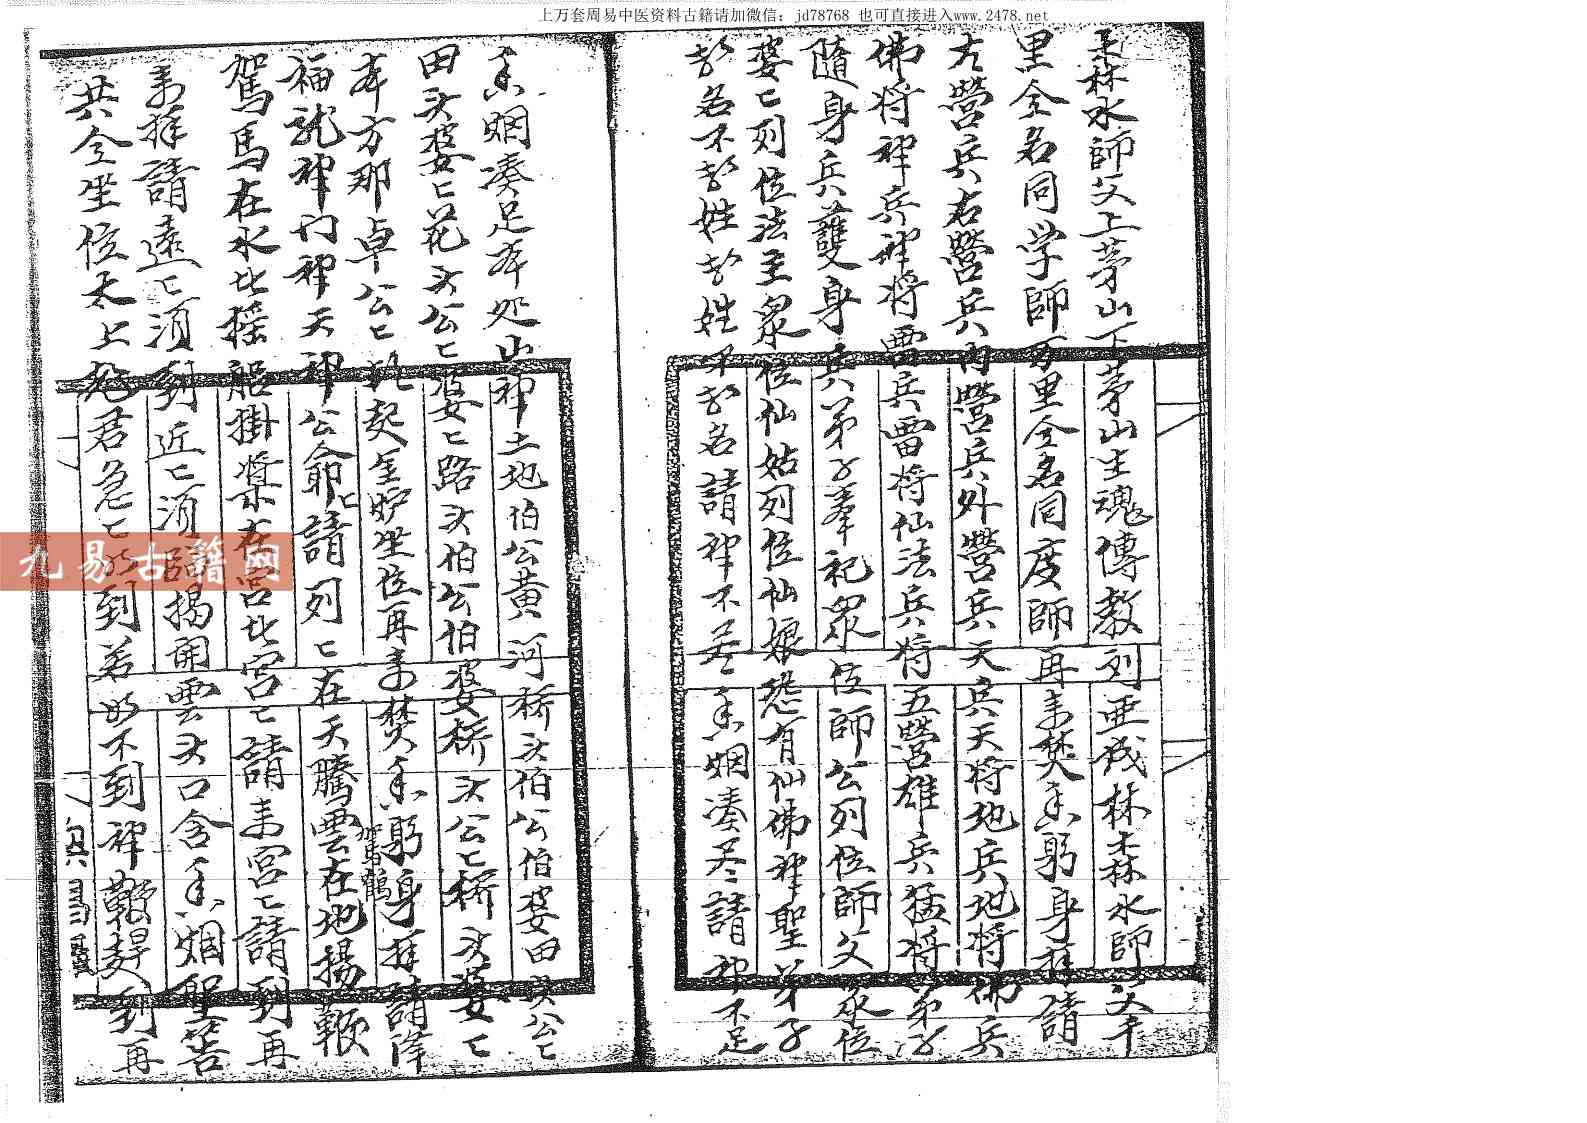 上万套周易中医资料古籍请加微信：jd78768 也可直接进入www.2478.net
森林水師父上茅山下茅山生魂傳教列亜成林木森水師父千
里全名同学師万里全名同度師再来焚香躬身拜請
左營兵右營兵内營兵外營兵天兵天将地兵地将佛兵
佛将神兵神将雷兵雷将仙法兵将五營雄兵猛将弟子
隨身兵護身兵弟子奉祀眾位師公列位師父眾位
婆匕列位法主眾位仙姑列位仙娘恐有仙佛神聖弟子
部名不部姓部姓不部名請神不尽香烟凑尽請神不足
香烟凑足本処山神土地伯公黄河橋头伯公伯婆田头公匕
田头婆匕花头公匕婆匕路头伯公伯婆橋头公匕橋头婆匕
本方那卓公匕扎起金炉坐位再来焚香躬身拜請降
福龙神门神天神公爺匕請列匕在天騰雲在地揚鞭
駕鶴
駕馬在水北摇船掛槳在宮北宮匕請来宮匕請到再
来拜請遠匕須到近匕須臨揭開雲头口含香烟聖筶
共全坐位太上老君急匕的到若的不到神鞭趕到再
九易古籍网